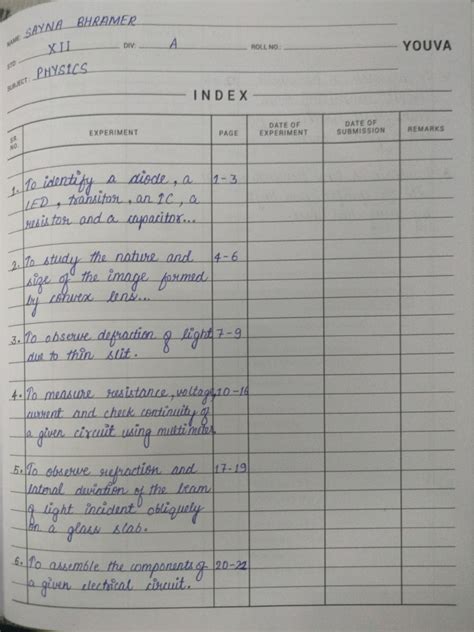 NAME: SAYNA BHRAMER
STD: XII DIV: A ROLL NO.: YOUVA
SUBJECT: PHYSICS
INDEX
SR. NO. EXPERIMENT PAGE DATE OF EXPERIMENT DATE OF SUBMISSION REMARKS
1. To identify a diode, a 1-3
LED, transitor, an IC, a
resistor and a capacitor...
2. To study the nature and 4-6
size of the image formed
by convex lens...
3. To observe defraction of light 7-9
due to thin slit.
4. To measure resistance, voltage, 10-16
current and check continuity of
a given circuit using multimeter
5. To observe refraction and 17-19
lateral deviation of the beam
of light incident obliquely
on a glass slab.
6. To assemble the components of 20-22
a given electrical circuit.